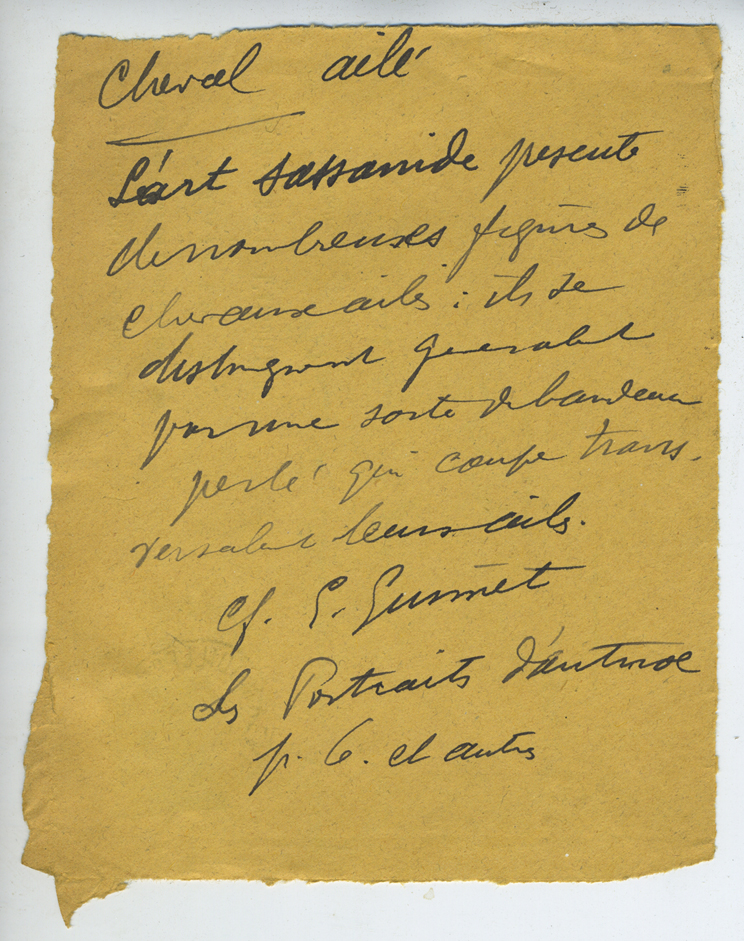 Cheval ailé
L'art sassanide présente
de nombreuses figures de
chevaux ailés : ils se
distinguent generalent
par une sorte de bandeau
perlé qui coupe trans-
versalent leurs ailes.
Cf. E. Guimet
Les Portraits d'Antinoé
p. 6. et autres